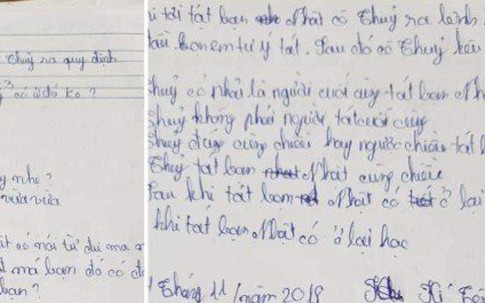 Thuỷ ra quy định
có ở đó ko ?
nhẹ ?
vừa vừa
có nói từ đi ma
má bạn đó có
bạn ?
tôi tát bạn Nhật cô Thuỷ ra lệnh
em tự ý tát. Sau đó cô Thuỷ kêu
Thuỷ có phải là người cuối cùng tát bạn
Thuỷ không phải người tát cuối cùng
Thuỷ đứng cùng chiều hay ngược chiều tát
Thuỷ tát bạn Nhật cùng chiều
Sau khi tát bạn Nhật có ở lại
khi tát bạn Nhật có ở lại học
Tháng 11 / năm 2018